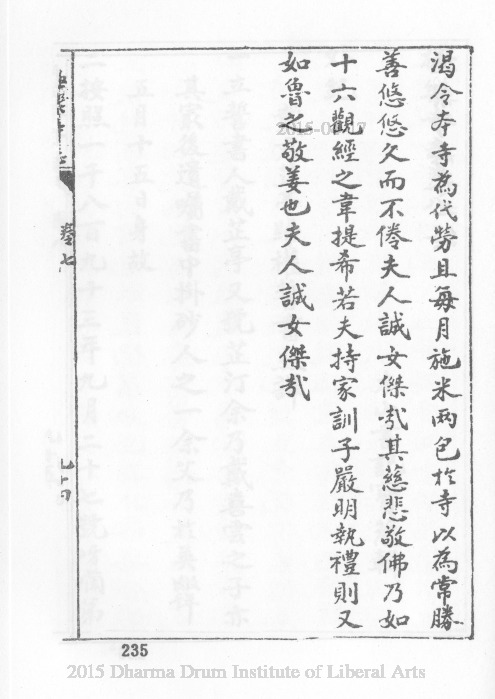 渴令本寺為代勞且每月施米兩包於寺以為常勝
善悠悠久而不倦夫人誠女傑哉其慈悲敬佛乃如
十六觀經之韋提希若夫持家訓子嚴明執禮則又
如魯之敬姜也夫人誠女傑哉
卷七
235
2015 Dharma Drum Institute of Liberal Arts